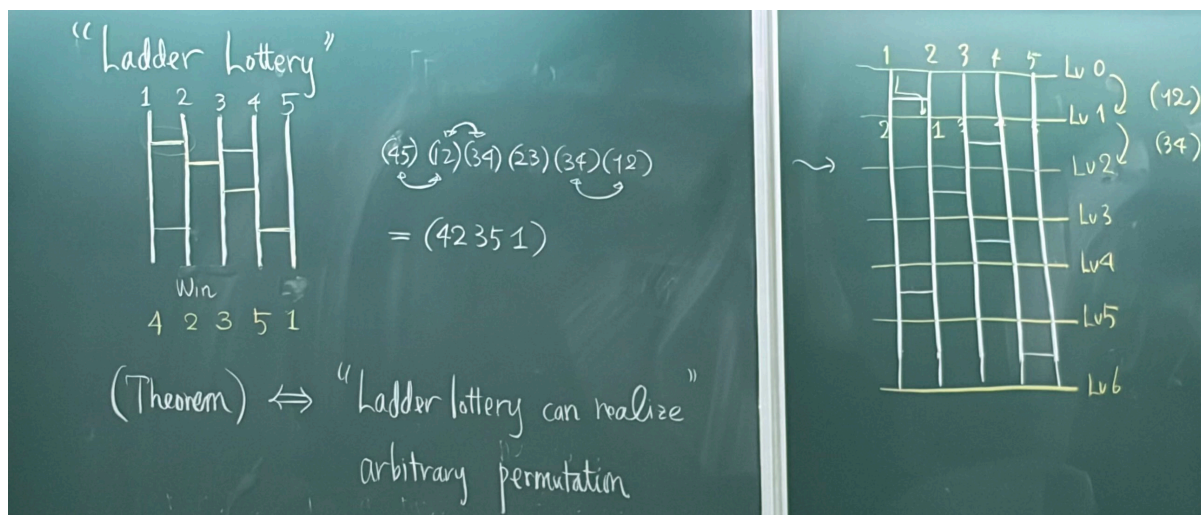 "Ladder Lottery"
1 2 3 4 5
Win
4 2 3 5 1
(45) (12)(34)(23)(34)(12)
= (42351)
(Theorem) ⇔ "Ladder lottery can realize"
arbitrary permutation
1 2 3 4 5 Lv 0
(12)
2 1 3 4 Lv 1
(34)
Lv 2
Lv 3
Lv4
Lv5
Lv6